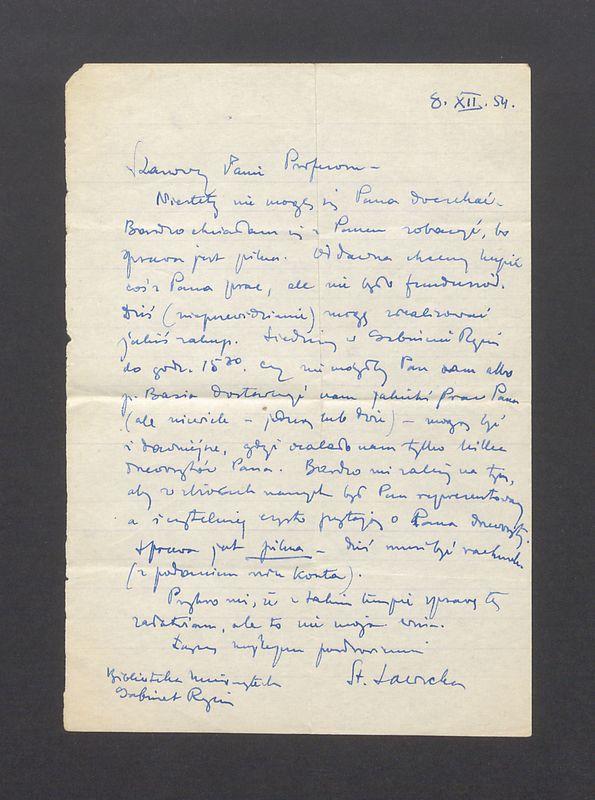 8. XII. 54.
Szanowny Panie Profesorze –
Niestety nie mogę się Pana doczekać.
Bardzo chciałam się z Panem zobaczyć, bo
sprawa jest pilna. Od dawna chcemy kupić
coś z Pana prac, ale nie było funduszów.
Dziś (nieprzewidzianie) mogę zrealizować
jakiś zakup. Siedzimy w Gabinecie Rycin
do godz. 15³⁰. Czy nie mógłby Pan sam albo
p. Basia dostarczyć nam jakichś prac Pana
(ale niewiele – jedną lub dwie) – mogą być
i dawniejsze, gdyż ocalało nam tylko kilka
drzeworytów Pana. Bardzo mi zależy na tym,
aby w zbiorach naszych był Pan reprezentowany
a i czytelnicy często pytają o Pana drzeworyty.
Sprawa jest pilna – dziś musi być rachunek
(z podaniem nru konta).
Przykro mi, że w takim tempie sprawę tę
załatwiam, ale to nie moja wina.
Łączę najlepsze pozdrowienia
St. Sawicka
Biblioteka Uniwersytecka
Gabinet Rycin